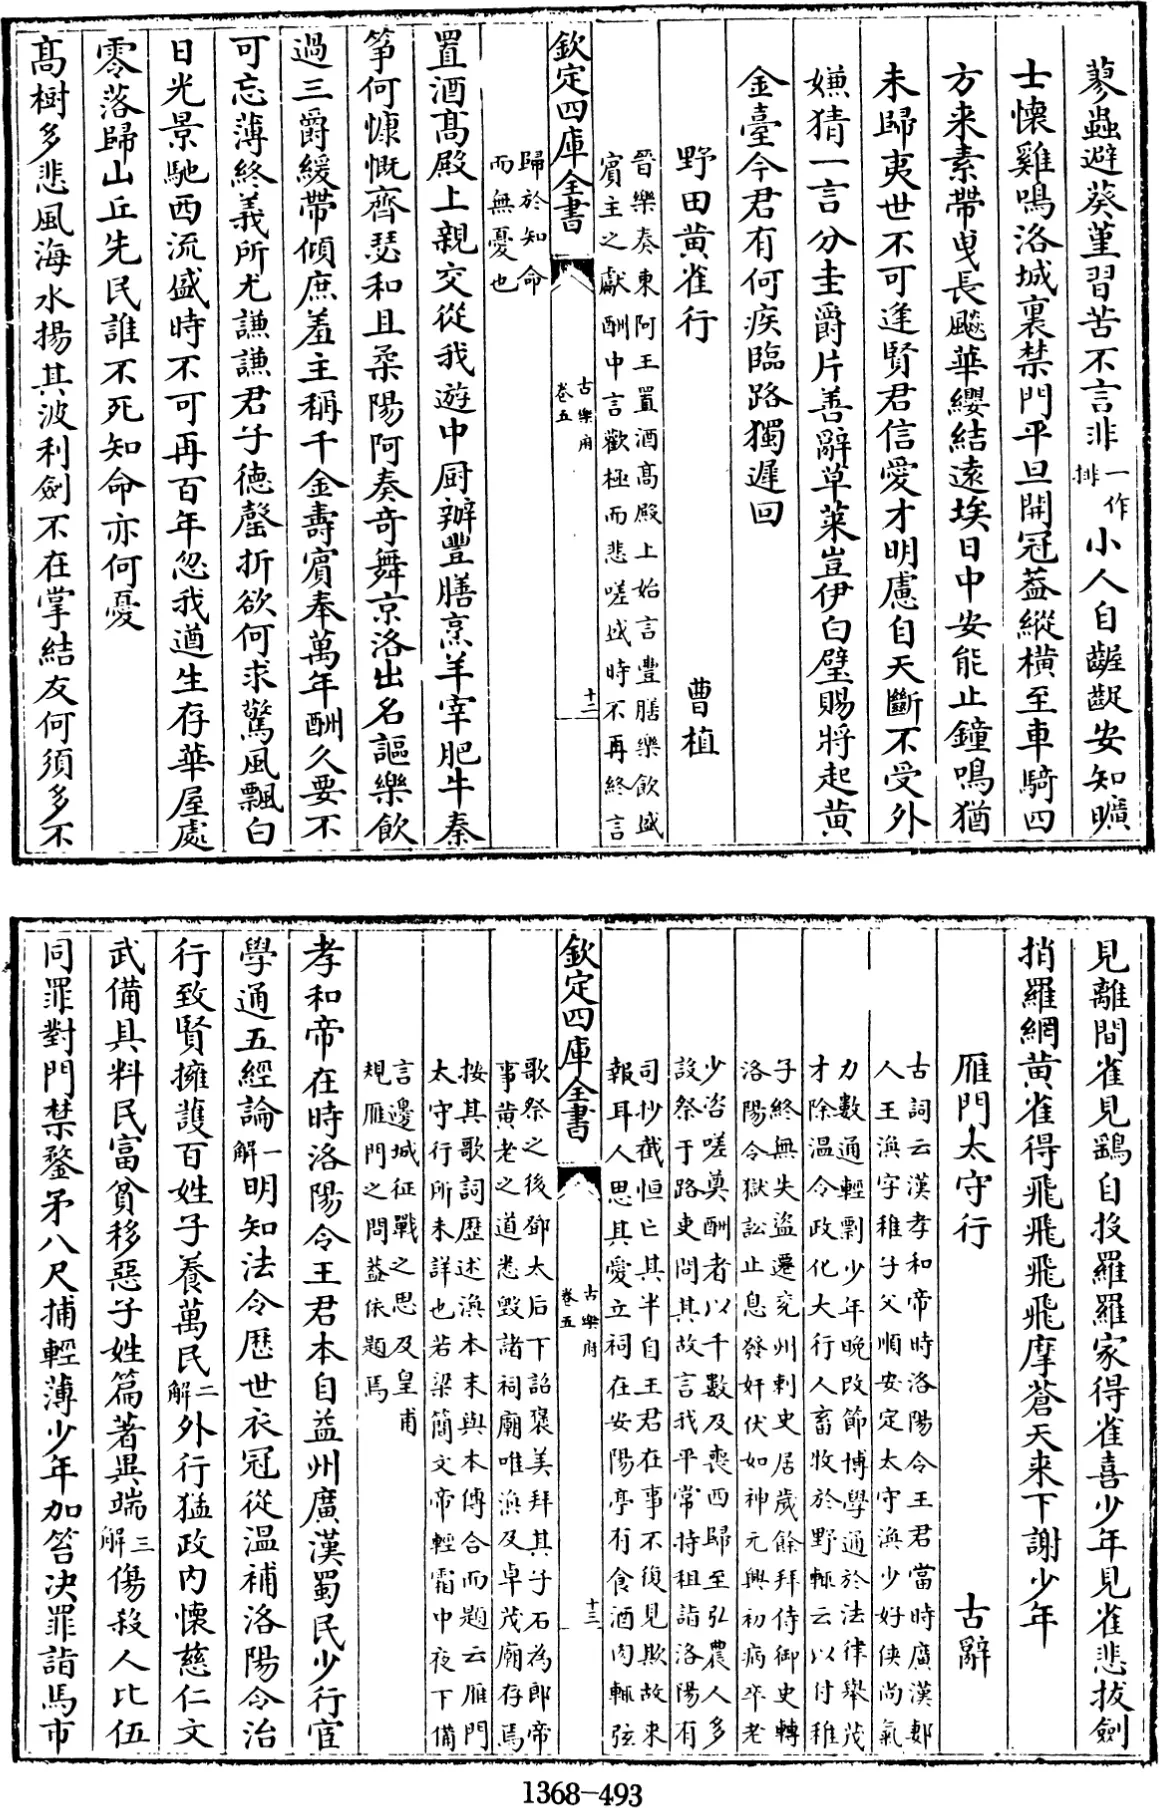 蓼蟲避葵堇習苦不言非一作排小人自齷齪安知曠
士懷雞鳴洛城裏禁門平旦開冠葢縱橫至車騎四
方来素帶曵長飈華纓結遠埃日中安能止鐘鳴猶
未歸夷世不可逢賢君信愛才明慮自天斷不受外
嫌猜一言分圭爵片善辭草萊豈伊白璧賜將起黄
金臺今君有何疾臨路獨遲回
野田黄雀行 曹植
晉樂奏東阿王置酒髙殿上始言豐膳樂飲盛
賓主之獻酬中言歡極而悲嗟盛時不再終言
欽定四庫全書
古樂府
卷五
十二
歸於知命
而無憂也
置酒髙殿上親交從我遊中厨辦豐膳烹羊宰肥牛秦
筝何慷慨齊瑟和且柔陽阿奏竒舞京洛出名謳樂飲
過三爵緩帶傾庶羞主稱千金壽賓奉萬年酬久要不
可忘薄終義所尤謙謙君子德罄折欲何求驚風飄白
日光景馳西流盛時不可再百年忽我遒生存華屋處
零落歸山丘先民誰不死知命亦何憂
髙樹多悲風海水揚其波利劍不在掌結友何須多不
見離間雀見鷂自投羅羅家得雀喜少年見雀悲拔劍
捎羅網黄雀得飛飛飛飛摩蒼天来下謝少年
雁門太守行 古辭
古詞云漢孝和帝時洛陽令王君當時廣漢郪
人王渙字稚子父順安定太守渙少好俠尚氣
力數通輕剽少年晩改節博學通於法律舉茂
才除温令政化大行人畜牧於野輒云以付稚
子終無失盜遷兖州刺史居歲餘拜侍御史轉
洛陽令獄訟止息發奸伏如神元興初病卒老
少咨嗟奠酬者以千數及喪西歸至弘農人多
設祭于路吏問其故言我平常持租詣洛陽有
司抄截恒亡其半自王君在事不復見欺故来
報耳人思其愛立祠在安陽亭有食酒肉輒弦
欽定四庫全書
古樂府
卷五
十三
歌祭之後鄧太后下詔褒美拜其子石為郎帝
事黄老之道悉毁諸祠廟唯渙及卓茂廟存焉
按其歌詞歴述渙本末與本傳合而題云雁門
太守行所未詳也若梁簡文帝輕霜中夜下備
言邊城征戰之思及皇甫
規雁門之問葢依題焉
孝和帝在時洛陽令王君本自益州廣漢蜀民少行宦
學通五經論一解明知法令歴世衣冠從温補洛陽令治
行致賢擁護百姓子養萬民二解外行猛政内懷慈仁文
武備具料民富貧移惡子姓篇著異端三解傷殺人比伍
同罪對門禁鍪矛八尺捕輕薄少年加笞决罪詣馬市
1368-493